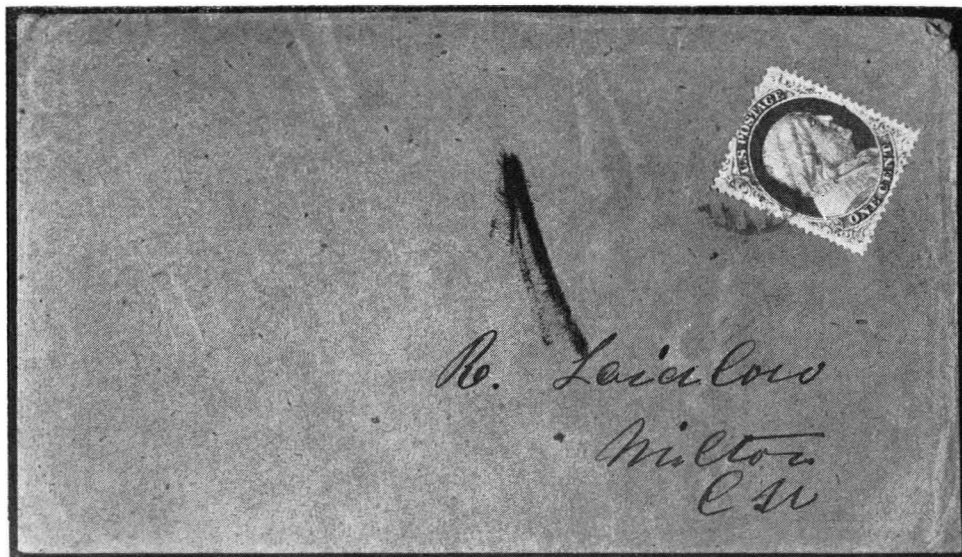 U.S. POSTAGE
ONE CENT
R. Laidlaw
Milton
C W